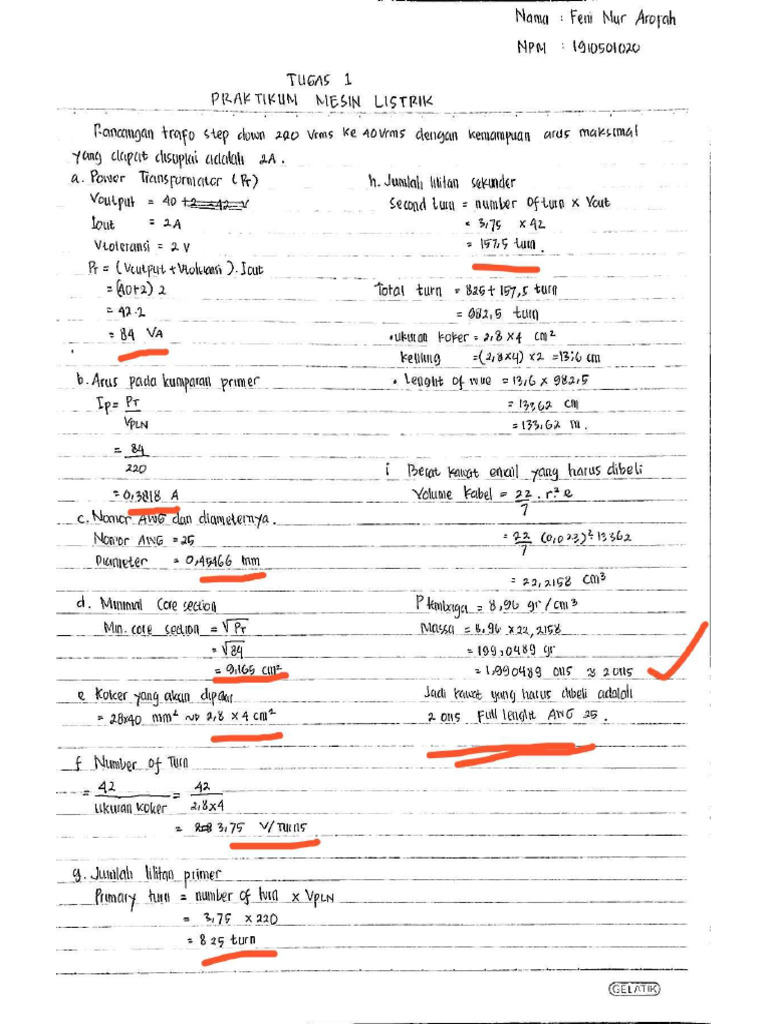 Nama : Feni Nur Arofah
NPM : 1910501020
TUGAS 1
PRAKTIKUM MESIN LISTRIK
Rancangan trafo step down 220 Vrms ke 40 Vrms dengan kemampuan arus maksimal
yang dapat disuplai adalah 2A.
a. Power Transformator (PT)
Voutput = 40 +2 = 42 V
Iout = 2A
Vtoleransi = 2 V
PT = (Voutput + Vtoleransi) . Iout
= (40+2) 2
= 42.2
= 84 VA
b. Arus pada kumparan primer
Ip = PT
VPLN
= 84
220
= 0,3818 A
c. Nomor AWG dan diameternya.
Nomor AWG = 25
Diameter = 0,45466 mm
d. Minimal Core section
Min. core section = √PT
= √84
= 9,165 cm²
e Koker yang akan dipakai
= 28x40 mm² ~ 2,8 x 4 cm²
f Number of Turn
= 42 = 42
Ukuran koker 2,8x4
= 3,75 V/Turns
g. Jumlah lilitan primer
Primary turn = number of turn x VPLN
= 3,75 x 220
= 825 turn
h. Jumlah lilitan sekunder
Second turn = number of turn x Vout
= 3,75 x 42
= 157,5 turn.
Total turn = 825 + 157,5 turn
= 982,5 turn
• ukuran koker = 2,8 x 4 cm²
keliling = (2,8x4) x 2 = 13,6 cm
• Lenght of wire = 13,6 x 982,5
= 13362 cm
= 133,62 m.
i Berat kawat email yang harus dibeli
Volume Kabel = 22 . r² e
7
= 22 (0,023)² 13362
7
= 22,2158 cm³
ρ tembaga = 8,96 gr/cm³
Massa = 8,96 x 22,2158
= 199,0489 gr
= 1,990489 ons ≈ 2 ons
Jadi kawat yang harus dibeli adalah
2 ons Full lenght AWG 25.
GELATIK